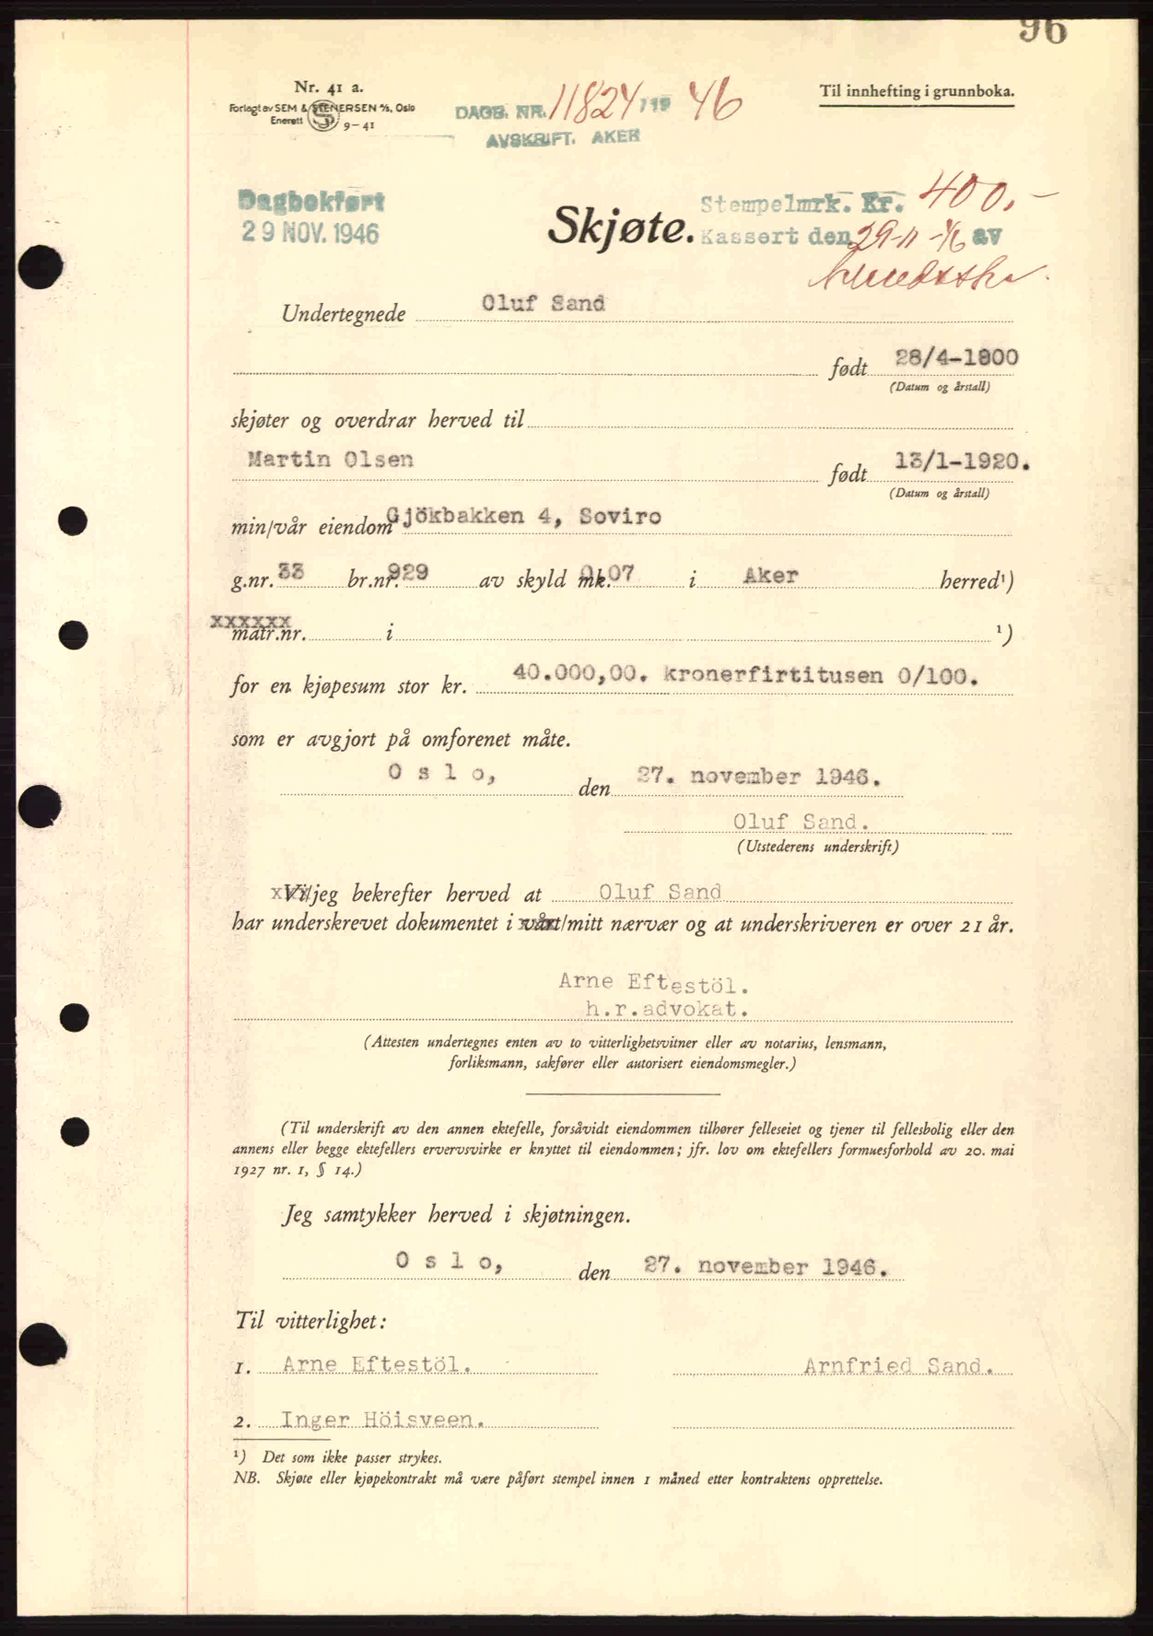 96
Nr. 41 a.
Forlagt av SEM & STENERSEN A/S, Oslo
Enerett 9-41
DAGB. NR. 11824/19 46
AVSKRIFT. AKER
Til innhefting i grunnboka.
Dagbokført
29 NOV. 1946
Skjøte.
Stempelmrk. Kr. 400,-
Kassert den 29-11-46 av
Undertegnede Oluf Sand
født 28/4-1900
(Datum og årstall)
skjøter og overdrar herved til
Martin Olsen født 13/1-1920.
(Datum og årstall)
min/vår eiendom Gjökbakken 4, Soviro
g.nr. 33 br.nr. 929 av skyld mk. 0.07 i Aker herred¹)
xxxxxx
matr.nr. i ¹)
for en kjøpesum stor kr. 40.000,00. kronerfirtitusen 0/100.
som er avgjort på omforenet måte.
O s l o, den 27. november 1946.
Oluf Sand.
(Utstederens underskrift)
Vi/jeg bekrefter herved at Oluf Sand
har underskrevet dokumentet i vårt/mitt nærvær og at underskriveren er over 21 år.
Arne Eftestöl.
h.r.advokat.
(Attesten undertegnes enten av to vitterlighetsvitner eller av notarius, lensmann,
forliksmann, sakfører eller autorisert eiendomsmegler.)
(Til underskrift av den annen ektefelle, forsåvidt eiendommen tilhører felleseiet og tjener til fellesbolig eller den
annens eller begge ektefellers ervervsvirke er knyttet til eiendommen; jfr. lov om ektefellers formuesforhold av 20. mai
1927 nr. 1, § 14.)
Jeg samtykker herved i skjøtningen.
O s l o, den 27. november 1946.
Til vitterlighet:
1. Arne Eftestöl. Arnfried Sand.
2. Inger Höisveen.
¹) Det som ikke passer strykes.
NB. Skjøte eller kjøpekontrakt må være påført stempel innen 1 måned etter kontraktens opprettelse.